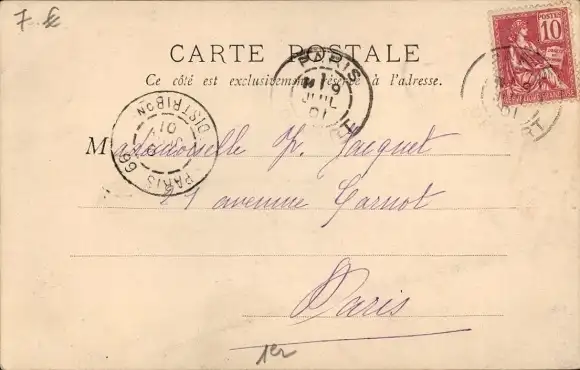 7 €
CARTE POSTALE
Ce côté est exclusivement réservé à l'adresse.
POSTES
10
PARIS
9
JUIL
01
DISTRIBON
01
PARIS 69
Mademoiselle Y. Jacquet
21 avenue Carnot
Paris
1er